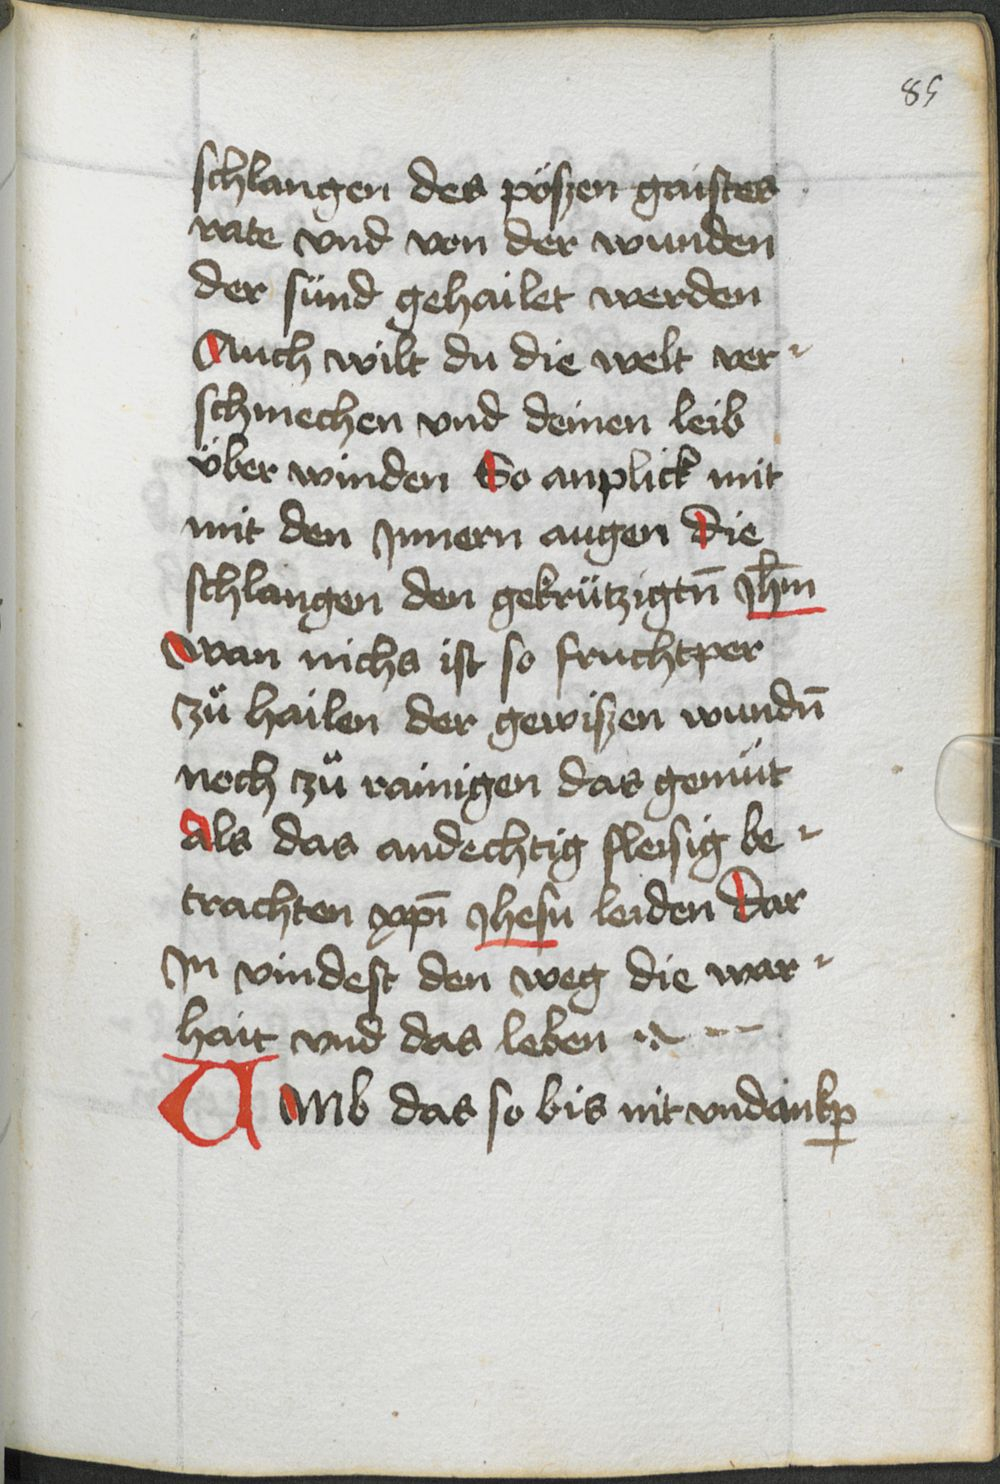 85
schlangen des pöszen gaistes
rate vnd von der wunden
der sünd gehailet werden
Auch wilt du die welt ver-
schmechen vnd deinen leib
über winden So anplick mit
mit den Innern augen Die
schlangen den gekrützigtn̄ Jhm̄
wan nichs ist so fruchtper
zů hailen der gewiszen wundn̄
noch zů rainigen das gemüt
Als das andechtig fleisig be-
trachten xp̄i Jhesu leiden Dar
In vindest den weg die war-
hait vnd das leben
U Mb das so bis nit vndankꝑ